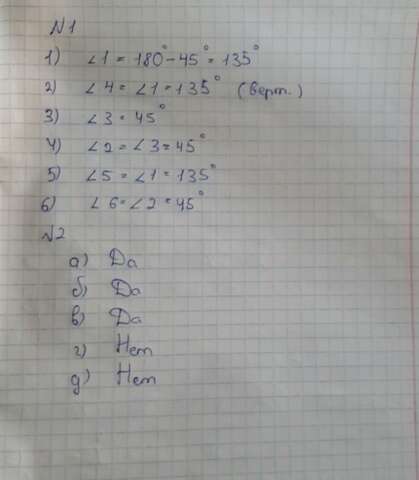 №1
1) ∠1 = 180° - 45° = 135°
2) ∠4 = ∠1 = 135° (верт.)
3) ∠3 = 45°
4) ∠2 = ∠3 = 45°
5) ∠5 = ∠1 = 135°
6) ∠6 = ∠2 = 45°
№2
а) Да
б) Да
в) Да
г) Нет
д) Нет